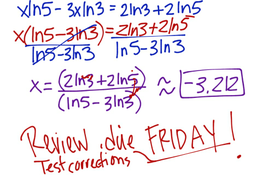 xln5 - 3xln3 = 2ln3+2ln5
x(ln5-3ln3) = 2ln3+2ln5
ln5-3ln3 ln5-3ln3
x = (2ln3+2ln5) ≈ -3.212
(ln5-3ln3)
Review due FRIDAY!
Test corrections